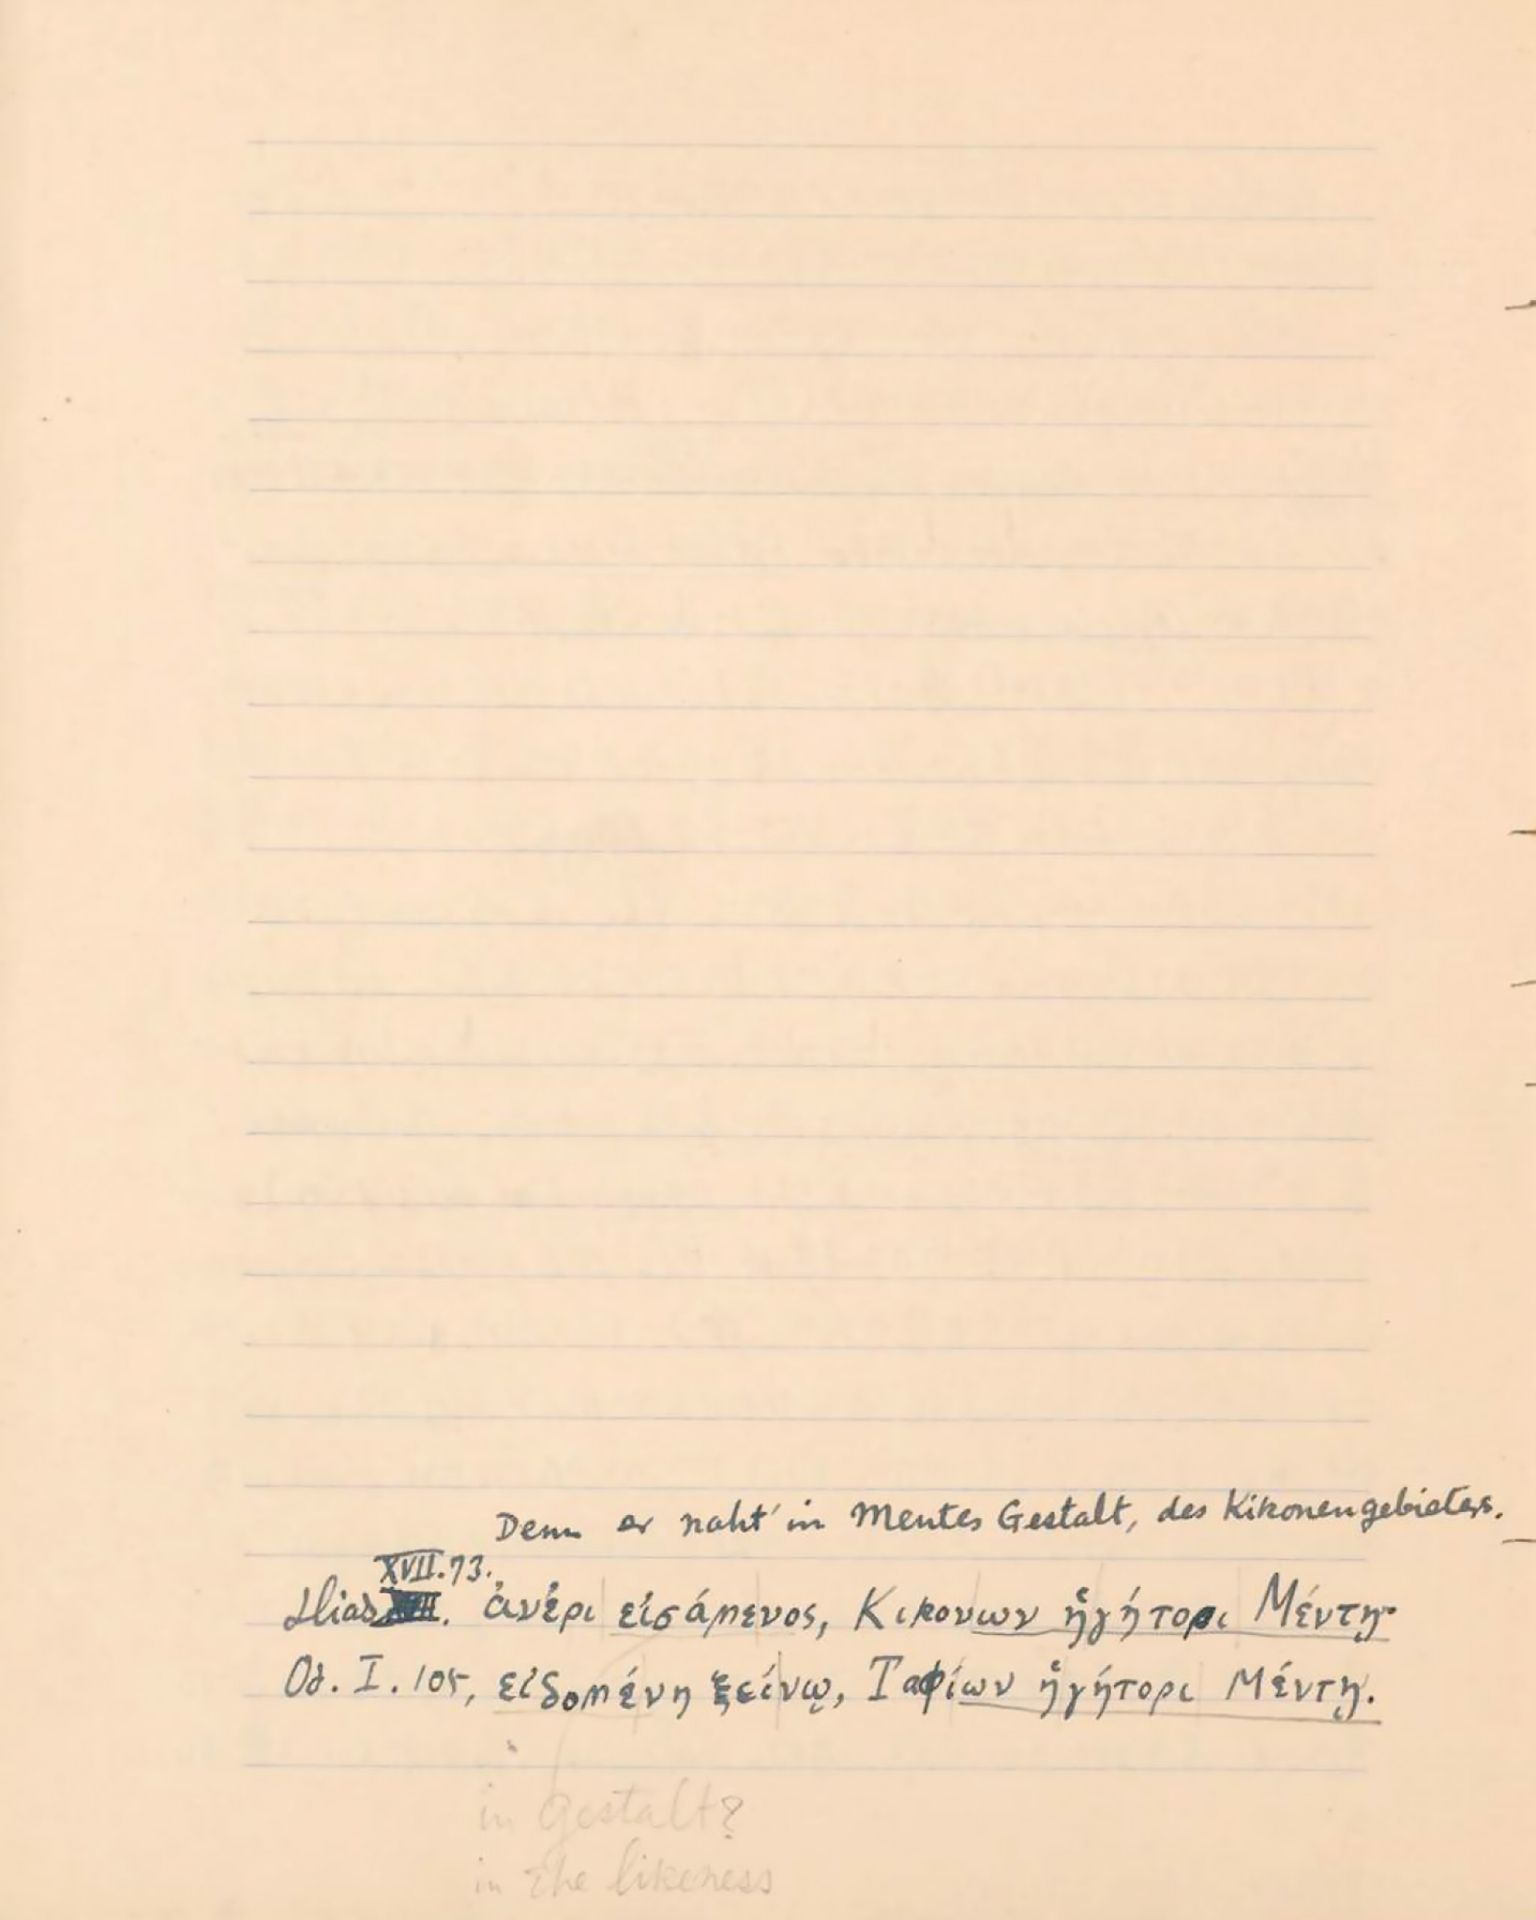 Denn er naht' in Mentes Gestalt, des Kikonengebieters.
XVII.73.
Ilias XVII. ἀνέρι εἰσάμενος, Κικονων ἡγήτορι Μέντῃ·
Od. I. 105, εἰδομένη ξείνῳ, Ταφίων ἡγήτορι Μέντῃ.
in Gestalt?
in the likeness